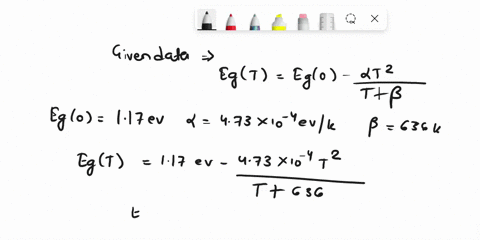 Given data ⇒
Eg(T) = Eg(0) - αT²/T+β
Eg(0) = 1.17 ev α = 4.73 ×10⁻⁴ ev/k β = 636 k
Eg(T) = 1.17 ev - 4.73 ×10⁻⁴ T²/T + 636
t